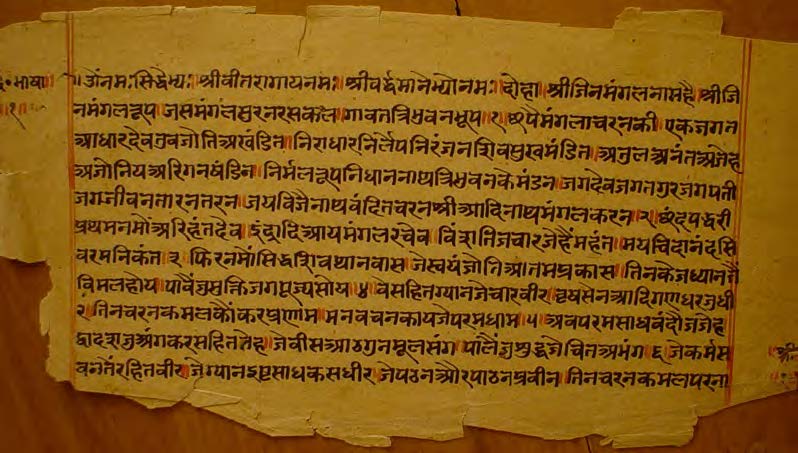 ॥ओंनमःसिद्धेभ्यः॥श्रीवीतरागायनमः॥श्रीवर्द्धमानेभ्योनमः॥दोहा॥श्रीजिनमंगलनामहै॥श्रीजि
नमंगलरूप॥जसमंगलसुरनरसकल॥गावतत्रिभवनभूप॥१॥छप्पैमंगलाचरनकी॥एकजगत
आधारदेवध्रुवजोतिअखंडित॥निराधारनिर्लेपनिरंजनशिवसुखमंडित॥अतुलअनंतअछेह
अजोनियअरिगनषंडित॥निर्मलरूपनिधाननाथत्रिभवनकेमंडन॥जगदेवजगतगुरजगपती
जगजीवनतारनतरन॥जयविजैनाथवंदितचरनश्रीआदिनाथमंगलकरन॥२॥छंदपद्धरी
प्रथमनमोंअरिहंतदेव॥इंद्रादिआयमंगलरचेव॥विंशतिजचारजेहैंमहंत॥मयचिदानंदसि
वरमनिकंत॥३॥फिरनमोंसिद्धशिवथानवास॥जेस्वयंजोतिआतमप्रकास॥तिनकेजध्यानतैं
विमलहोय॥पावैंजुमुक्तिजगपूज्यसोय॥४॥वेसहितग्यानजेचारवीर॥वृषसेनआदिगणधरजुधी
र॥तिनचरनकमलकौंकरप्रणाम॥मनवचनकायजेपरमधाम॥५॥अवपरमसाधवंदौंजजेह
द्वादशजुअंगकरसहिततेह॥जेवीसआठगुनमूलसंग॥पालैंजुशुद्धजेचितअभंग॥६॥जेकर्मस
वनतेंरहितवीर॥जेग्यानइष्टसाधकसधीर॥जेपठनऔरपाठनप्रवीन॥तिनचरनकमलपरना
भाषा॥
॥१॥
श्री